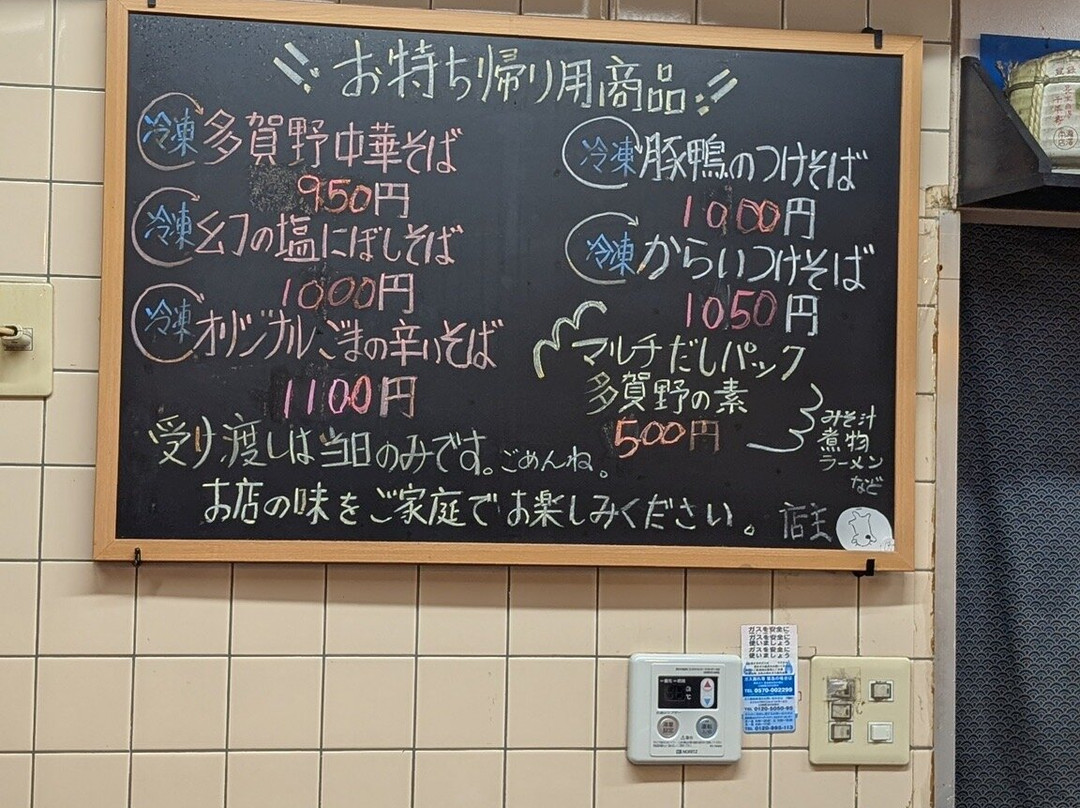 お持ち帰り用商品
冷凍 多賀野中華そば
950円
冷凍 幻の塩にぼしそば
1000円
冷凍 オリジナルごまの辛いそば
1100円
冷凍 豚鴨のつけそば
1000円
冷凍 からいつけそば
1050円
マルチだしパック
多賀野の素
500円
みそ汁
煮物
ラーメン
など
受け渡しは当日のみです。ごめんね。
お店の味をご家庭でお楽しみください。店主
ガスを安全に
使いましょう
ガスを安全に
使いましょう
TEL 0570-002299
NORITZ